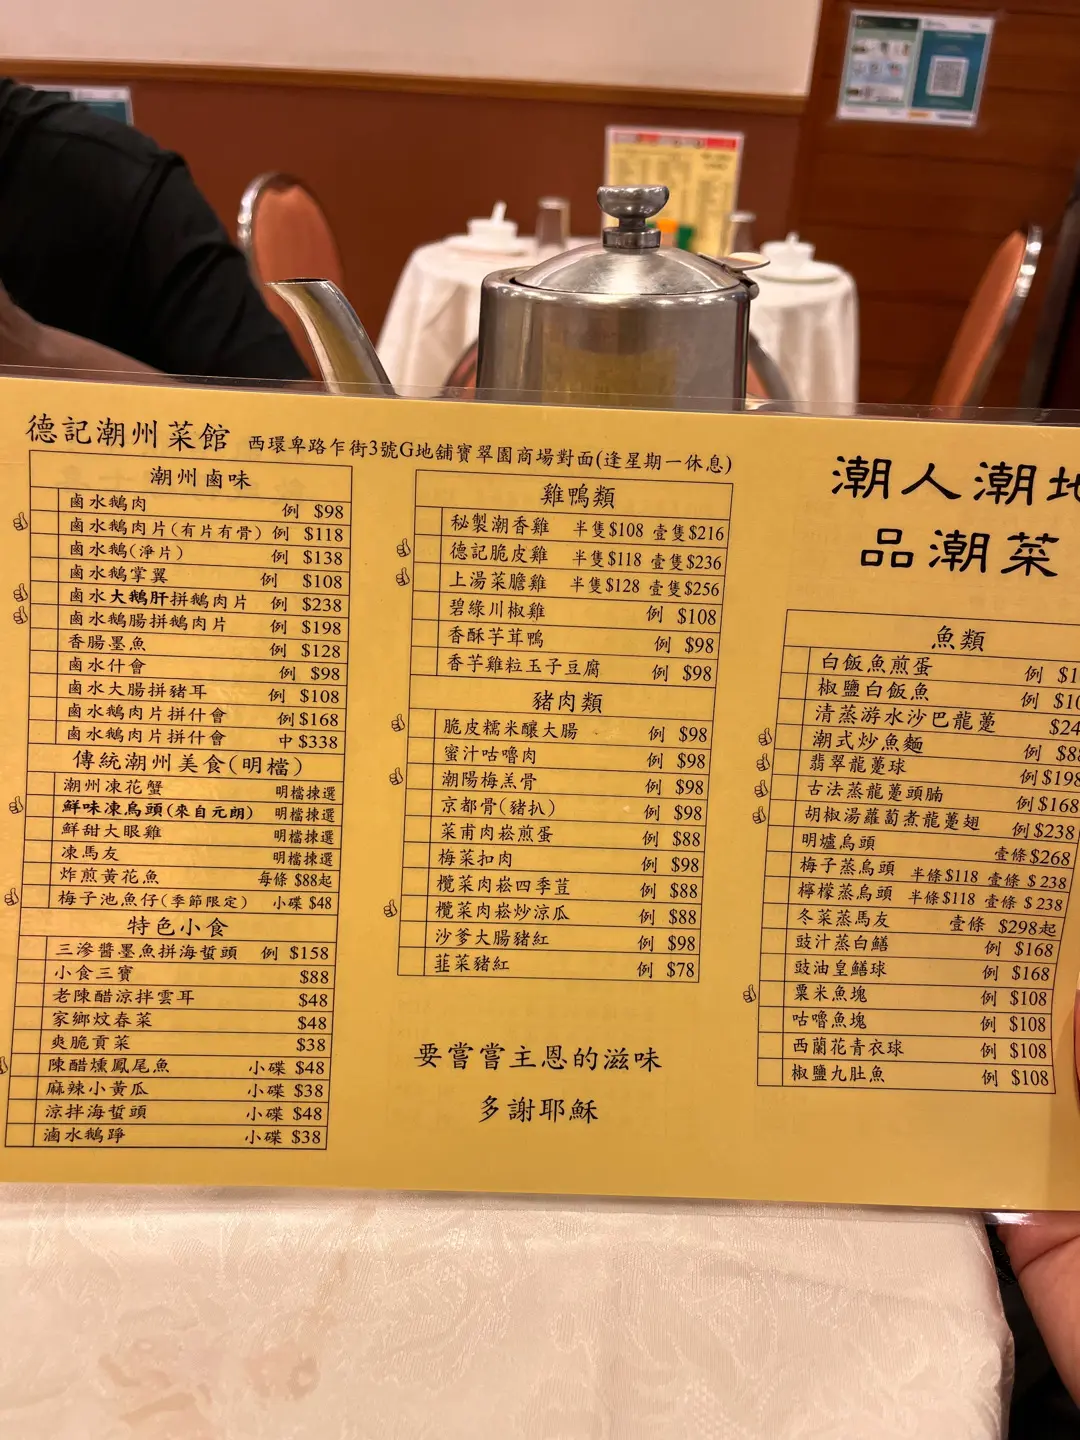 德記潮州菜館 西環卑路乍街3號G地舖寶翠園商場對面(逢星期一休息)
潮州鹵味
鹵水鵝肉 例 $98
鹵水鵝肉片(有片有骨) 例 $118
鹵水鵝(淨片) 例 $138
鹵水鵝掌翼 例 $108
鹵水大鵝肝拼鵝肉片 例 $238
鹵水鵝腸拼鵝肉片 例 $198
香腸墨魚 例 $128
鹵水什會 例 $98
鹵水大腸拼豬耳 例 $108
鹵水鵝肉片拼什會 例 $168
鹵水鵝肉片拼什會 中 $338
傳統潮州美食(明檔)
潮州凍花蟹 明檔揀選
鮮味凍烏頭(來自元朗) 明檔揀選
鮮甜大眼雞 明檔揀選
凍馬友 明檔揀選
炸煎黃花魚 每條 $88起
梅子池魚仔(季節限定) 小碟 $48
特色小食
三滲醬墨魚拼海蜇頭 例 $158
小食三寶 $88
老陳醋涼拌雲耳 $48
家鄉炆春菜 $48
爽脆貢菜 $38
陳醋燻鳳尾魚 小碟 $48
麻辣小黃瓜 小碟 $38
涼拌海蜇頭 小碟 $48
滷水鵝踭 小碟 $38
雞鴨類
秘製潮香雞 半隻$108 壹隻$216
德記脆皮雞 半隻$118 壹隻$236
上湯菜膽雞 半隻$128 壹隻$256
碧綠川椒雞 例 $108
香酥芋茸鴨 例 $98
香芋雞粒玉子豆腐 例 $98
豬肉類
脆皮糯米釀大腸 例 $98
蜜汁咕嚕肉 例 $98
潮陽梅羔骨 例 $98
京都骨(豬扒) 例 $98
菜甫肉崧煎蛋 例 $88
梅菜扣肉 例 $98
欖菜肉崧四季荳 例 $88
欖菜肉崧炒涼瓜 例 $88
沙爹大腸豬紅 例 $98
韮菜豬紅 例 $78
要嘗嘗主恩的滋味
多謝耶穌
潮人潮地
品潮菜
魚類
白飯魚煎蛋 例
椒鹽白飯魚 例
清蒸游水沙巴龍躉
潮式炒魚麵 例
翡翠龍躉球 例 $198
古法蒸龍躉頭腩 例 $168
胡椒湯蘿蔔煮龍躉翅 例 $238
明爐烏頭 壹條 $268
梅子蒸烏頭 半條 $118 壹條 $ 238
檸檬蒸烏頭 半條 $118 壹條 $ 238
冬菜蒸馬友 壹條 $298起
豉汁蒸白鱔 例 $168
豉油皇鱔球 例 $168
粟米魚塊 例 $108
咕嚕魚塊 例 $108
西蘭花青衣球 例 $108
椒鹽九肚魚 例 $108